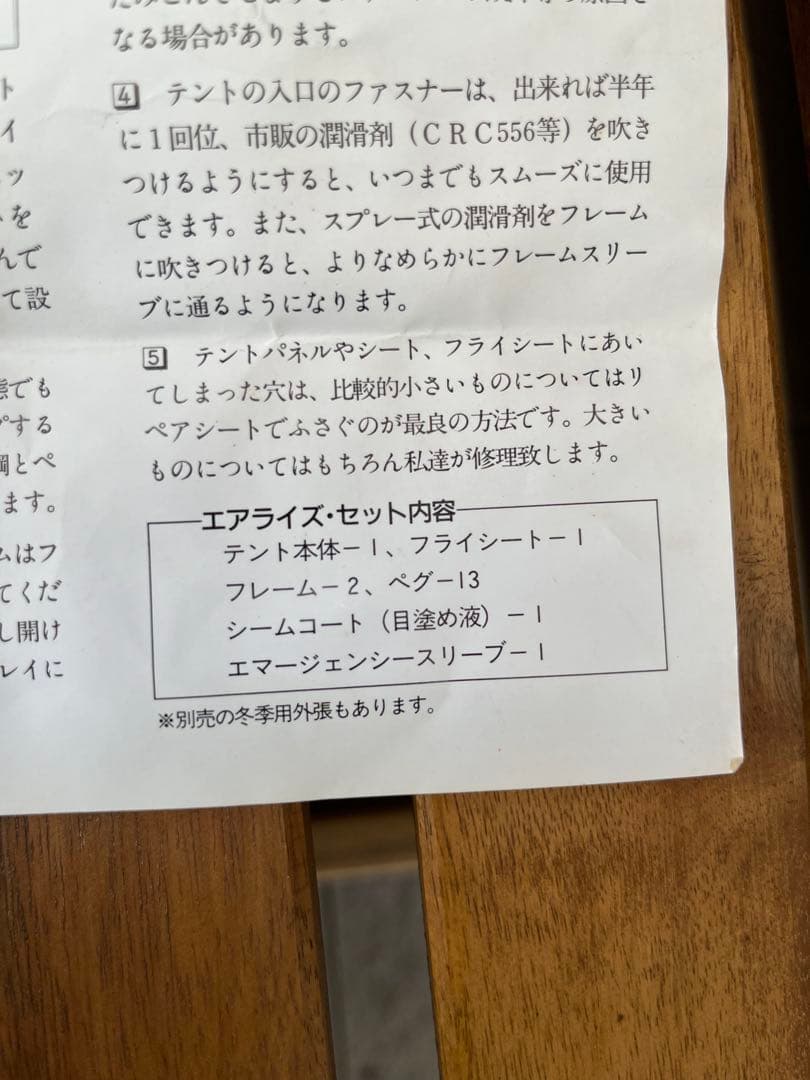 ト
イ
ッ
を
んで
て設
態でも
する
綱とペ
ます。
ムはフ
てくだ
し開け
レイに
なる場合があります。
4 テントの入口のファスナーは、出来れば半年
に1回位、市販の潤滑剤（ＣＲＣ556等）を吹き
つけるようにすると、いつまでもスムーズに使用
できます。また、スプレー式の潤滑剤をフレーム
に吹きつけると、よりなめらかにフレームスリー
ブに通るようになります。
5 テントパネルやシート、フライシートにあい
てしまった穴は、比較的小さいものについてはリ
ペアシートでふさぐのが最良の方法です。大きい
ものについてはもちろん私達が修理致します。
エアライズ・セット内容
テント本体－1、フライシート－1
フレーム－2、ペグ－13
シームコート（目塗め液）－1
エマージェンシースリーブ－1
※別売の冬季用外張もあります。